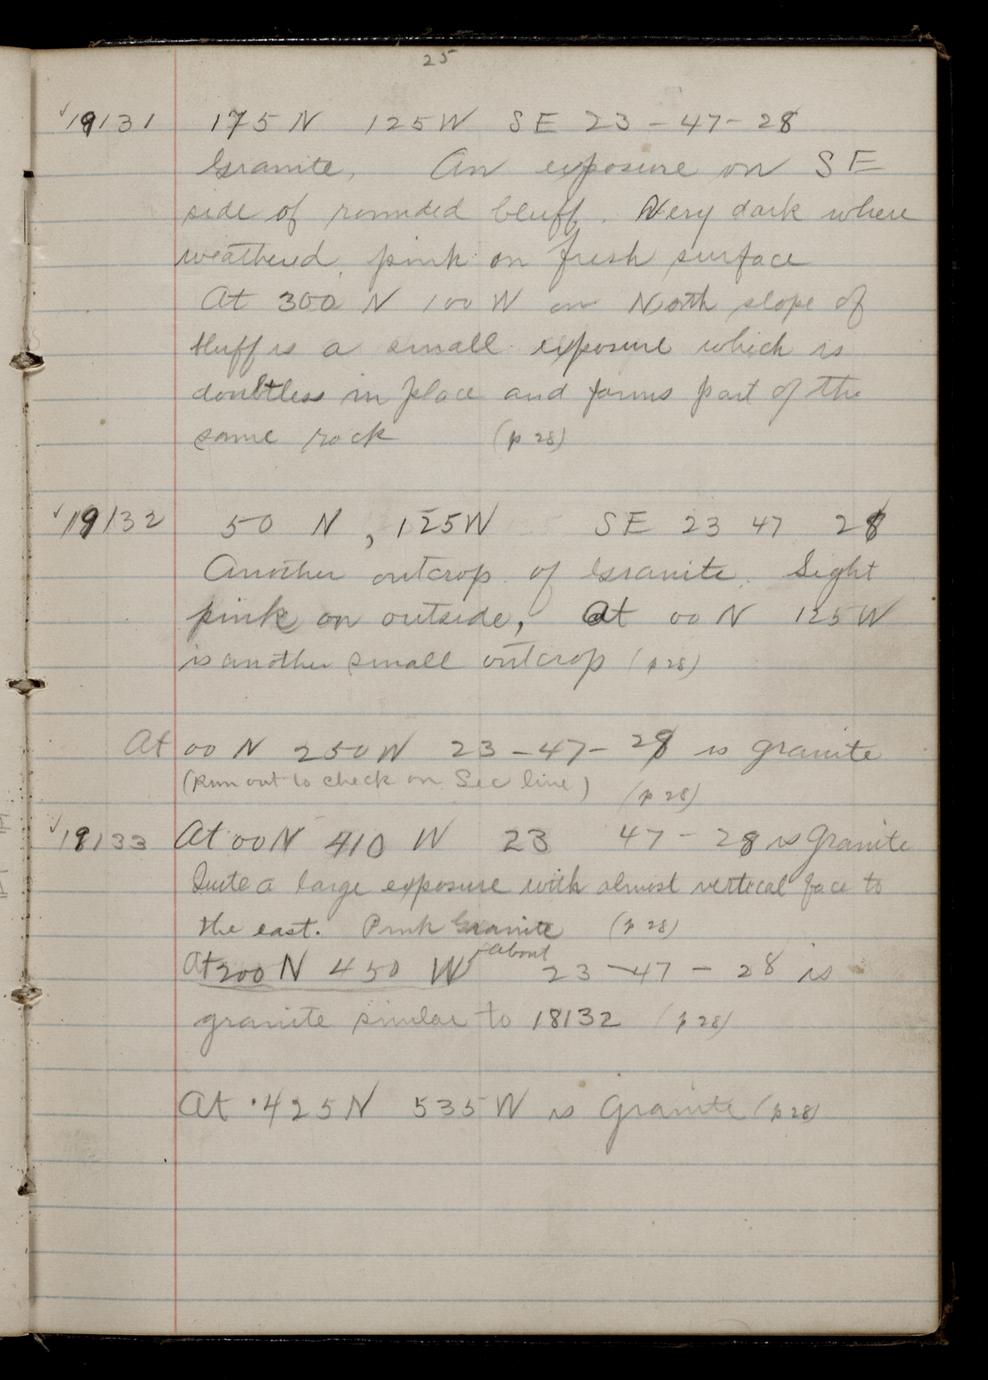 25
✓19131 175 N 125 W SE 23 - 47 - 28
Granite. An exposure on SE
side of rounded bluff. Very dark where
weathered, pink on fresh surface
At 300 N 100 W on North slope of
bluff is a small exposure which is
doubtless in place and forms part of the
same rock (p 28)
✓19132 50 N, 125 W SE 23 47 28
Another outcrop of Granite. Light
pink on outside, At 00 N 125 W
is another small outcrop (p 28)
At 00 N 250 W 23 - 47 - 28 is granite
(Run out to check on Sec line) (p 28)
✓19133 At 00 N 410 W 23 47 - 28 is granite
Quite a large exposure with almost vertical face to
the east. Pink Granite (p 28)
At 200 N 450 W about 23 - 47 - 28 is
granite similar to 18132 (p 28)
At 425 N 535 W is Granite (p 28)